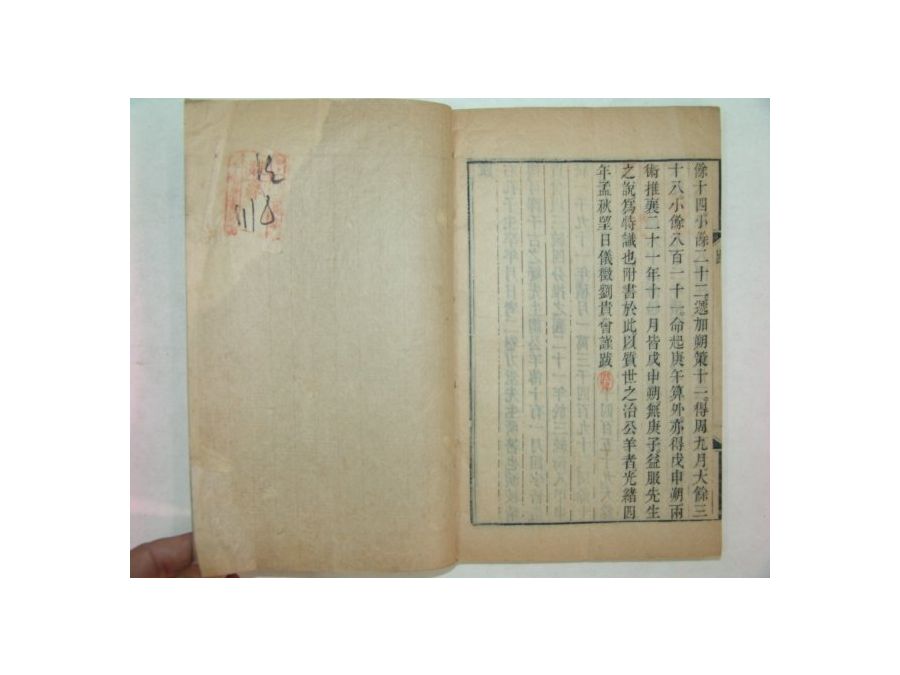 餘十四小餘二十二遞加朔策十一得周九月大餘三
十八小餘八百一十一命起庚午算外亦得戊申朔兩
術推襄二十一年十一月皆戊申朔無庚子益服先生
之說爲特識也附書於此以質世之治公羊者光緒四
年孟秋望日儀徵劉貴曾謹跋